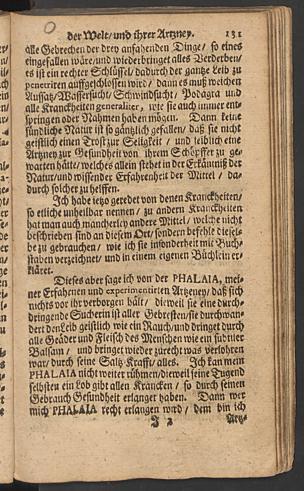 der Welt/ und ihrer Artzney. 131
alle Gebrechen der drey anfahenden Dinge/ so eines
eingefallen wäre/und wiederbringet alles Verderben/
es ist ein rechter Schlüssel/ dadurch der gantze Leib zu
penetriren auffgeschlossen wird/ dann es muß weichen
Aussatz/Wassersucht/ Schwindsucht/ Podagra und
alle Kranckheiten generaliter, wie sie auch immer ent-
springen oder Nahmen haben mögen. Dann keine
sündliche Natur ist so gäntzlich gefallen/ daß sie nicht
geistlich einen Trost zur Seligkeit / und leiblich eine
Artzney zur Gesundheit von ihrem Schöpffer zu ge-
warten hätte/welches allein stehet in der Erkäntniß der
Natur/und wissender Erfahrenheit der Mittel / da-
durch solcher zu helffen.
Ich habe jetzo geredet von denen Kranckheiten/
so etliche unheilbar nennen/ zu andern Kranckheiten
hat man auch mancherley andere Mittel/ welche nicht
beschrieben sind an diesem Ort/ sondern befehle diesel-
be zu gebrauchen/ wie ich sie insonderheit mit Buch-
staben verzeichnet/ und in einem Büchlein er-
kläret.
Dieses aber sage ich von der PHALAIA, mei-
ner Erfahrnen und experimentirten Artzney/ daß sich
nichts vor ihr verborgen hält/ dieweil sie eine durch-
dringende Sucherin ist aller Gebresten/sie durchwan-
dert den Leib geistlich wie ein Rauch/und dringet durch
alle Geäder und Fleisch des Menschen wie ein subtiler
Balsam/ und bringet wieder zurecht was verlohren
war/ durch seine Saltz Krafft/ alles. Ich kan mein
PHALAIA nicht weiter rühmen/dieweil seine Tugend
selbsten ein Lob gibt allen Krancken/ so durch seinen
Gebrauch Gesundheit erlanget haben. Dann wer
mich PHALAIA recht erlangen wird/ dem bin ich
J 2 Artz-